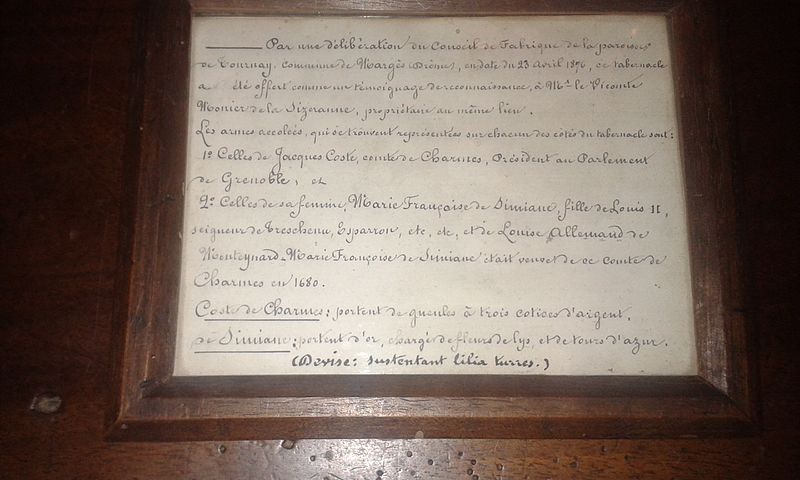 Par une délibération du Conseil de Fabrique de la paroisse
de Tournay, commune de Margès (Drôme), en date du 23 avril 1876, ce tabernacle
a été offert comme un témoignage de reconnaissance, à Mr le Vicomte
Monier de la Sizeranne, propriétaire au même lieu.
Les armes accolées, qui se trouvent représentées sur chacun des côtés du tabernacle sont:
1º Celles de Jacques Coste, comte de Charmes, Président au Parlement
de Grenoble, et
2º Celles de sa femme, Marie Françoise de Simiane, fille de Louis II,
seigneur de Treschenu, Esparron, etc, etc, et de Louise Allemand de
Monteynard. Marie Françoise de Simiane était veuve de ce comte de
Charmes en 1680.
Coste de Charmes: portent de gueules à trois cotices d'argent.
de Simiane: portent d'or, chargé de fleurs de lys, et de tours d'azur.
(Devise: sustentant lilia turres.)